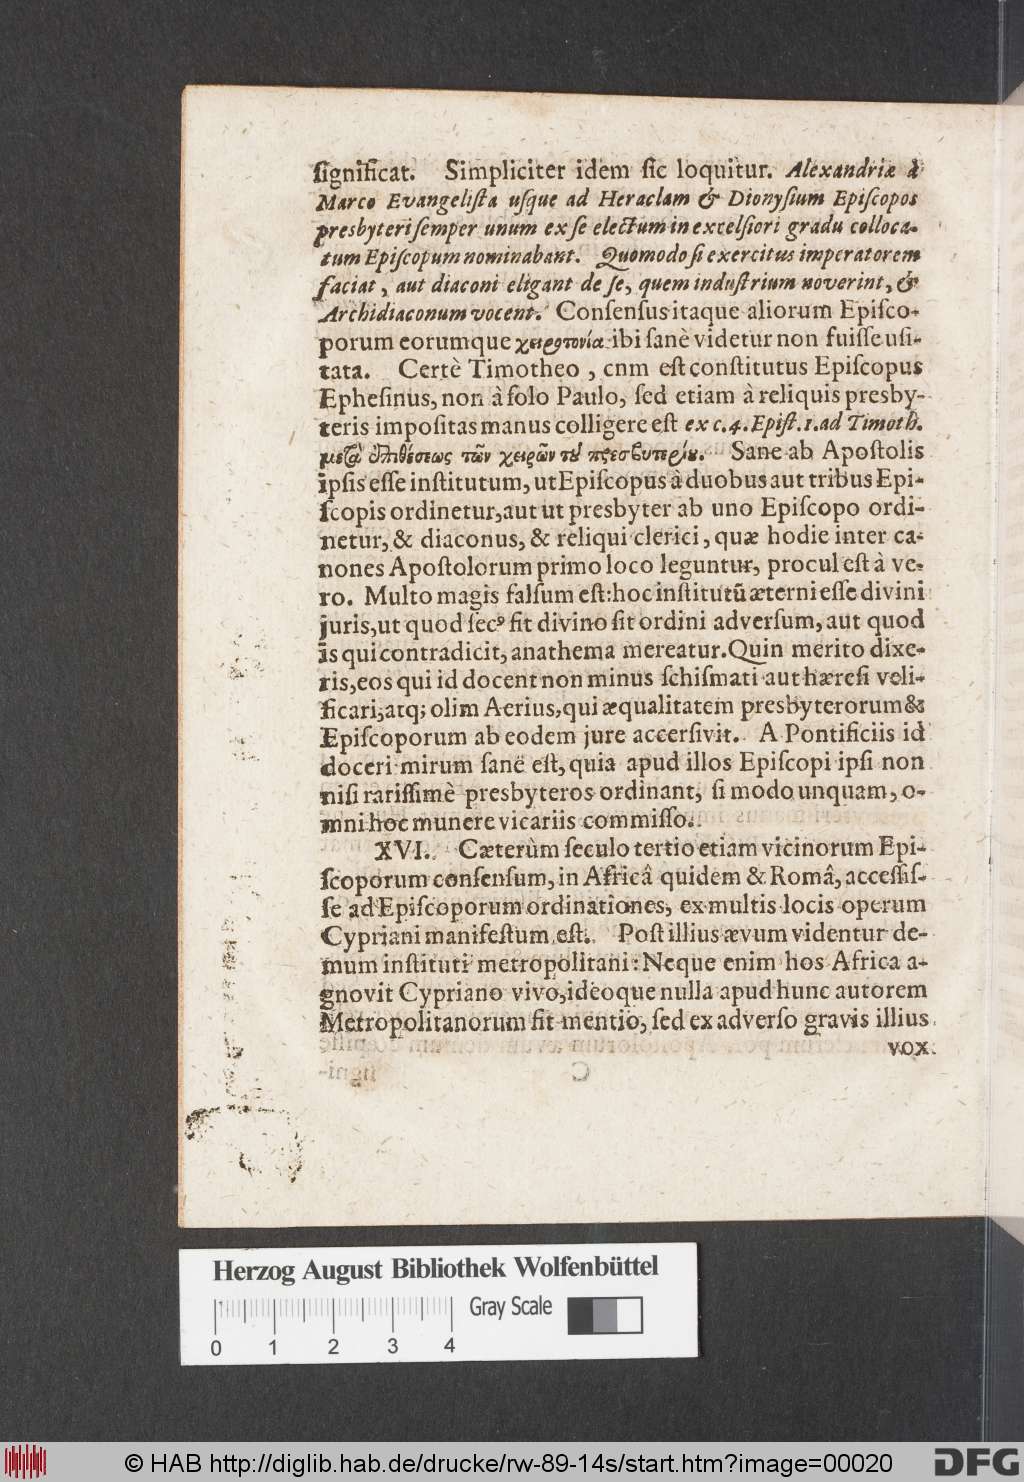 ſignificat. Simpliciter idem ſic loquitur. Alexandriæ à
Marco Evangeliſta uſque ad Heraclam & Dionyſium Epiſcopos
presbyteri ſemper unum ex ſe electum in excelſiori gradu colloca-
tum Epiſcopum nominabant. Quomodo ſi exercitus imperatorem
faciat, aut diaconi eligant de ſe, quem induſtrium noverint, &
Archidiaconum vocent. Conſenſus itaque aliorum Epiſco-
porum eorumque χειροτονία ibi ſanè videtur non fuiſſe uſi-
tata. Certè Timotheo, cnm eſt conſtitutus Epiſcopus
Epheſinus, non à ſolo Paulo, ſed etiam à reliquis presby-
teris impoſitas manus colligere eſt ex c. 4. Epiſt. 1. ad Timoth.
μεζὰ ἐπιθέσεως τῶν χειρῶν τȣ πρεσβυτερίȣ. Sane ab Apoſtolis
ipſis eſſe inſtitutum, ut Epiſcopus à duobus aut tribus Epi-
ſcopis ordinetur, aut ut presbyter ab uno Epiſcopo ordi-
netur, & diaconus, & reliqui clerici, quæ hodie inter ca-
nones Apoſtolorum primo loco leguntur, procul eſt à ve-
ro. Multo magis falſum eſt: hoc inſtitutũ æterni eſſe divini
juris, ut quod ſecꝰ fit divino ſit ordini adverſum, aut quod
is qui contradicit, anathema mereatur. Quin merito dixe-
ris, eos qui id docent non minus ſchiſmati aut hæreſi veli-
ficari, atq; olim Aerius, qui æqualitatem presbyterorum &
Epiſcoporum ab eodem jure accerſivit. A Pontificiis id
doceri mirum ſanè eſt, quia apud illos Epiſcopi ipſi non
niſi rariſſimè presbyteros ordinant, ſi modo unquam, o-
mni hoc munere vicariis commiſſo.
XVI. Cæterùm ſeculo tertio etiam vicinorum Epi-
ſcoporum conſenſum, in Africâ quidem & Româ, acceſſiſ-
ſe ad Epiſcoporum ordinationes, ex multis locis operum
Cypriani manifeſtum eſt. Poſt illius ævum videntur de-
mum inſtituti metropolitani: Neque enim hos Africa a-
gnovit Cypriano vivo, ideoque nulla apud hunc autorem
Metropolitanorum fit mentio, ſed ex adverſo gravis illius
vox
Herzog August Bibliothek Wolfenbüttel
Gray Scale
0 1 2 3 4
© HAB http://diglib.hab.de/drucke/rw-89-14s/start.htm?image=00020
DFG